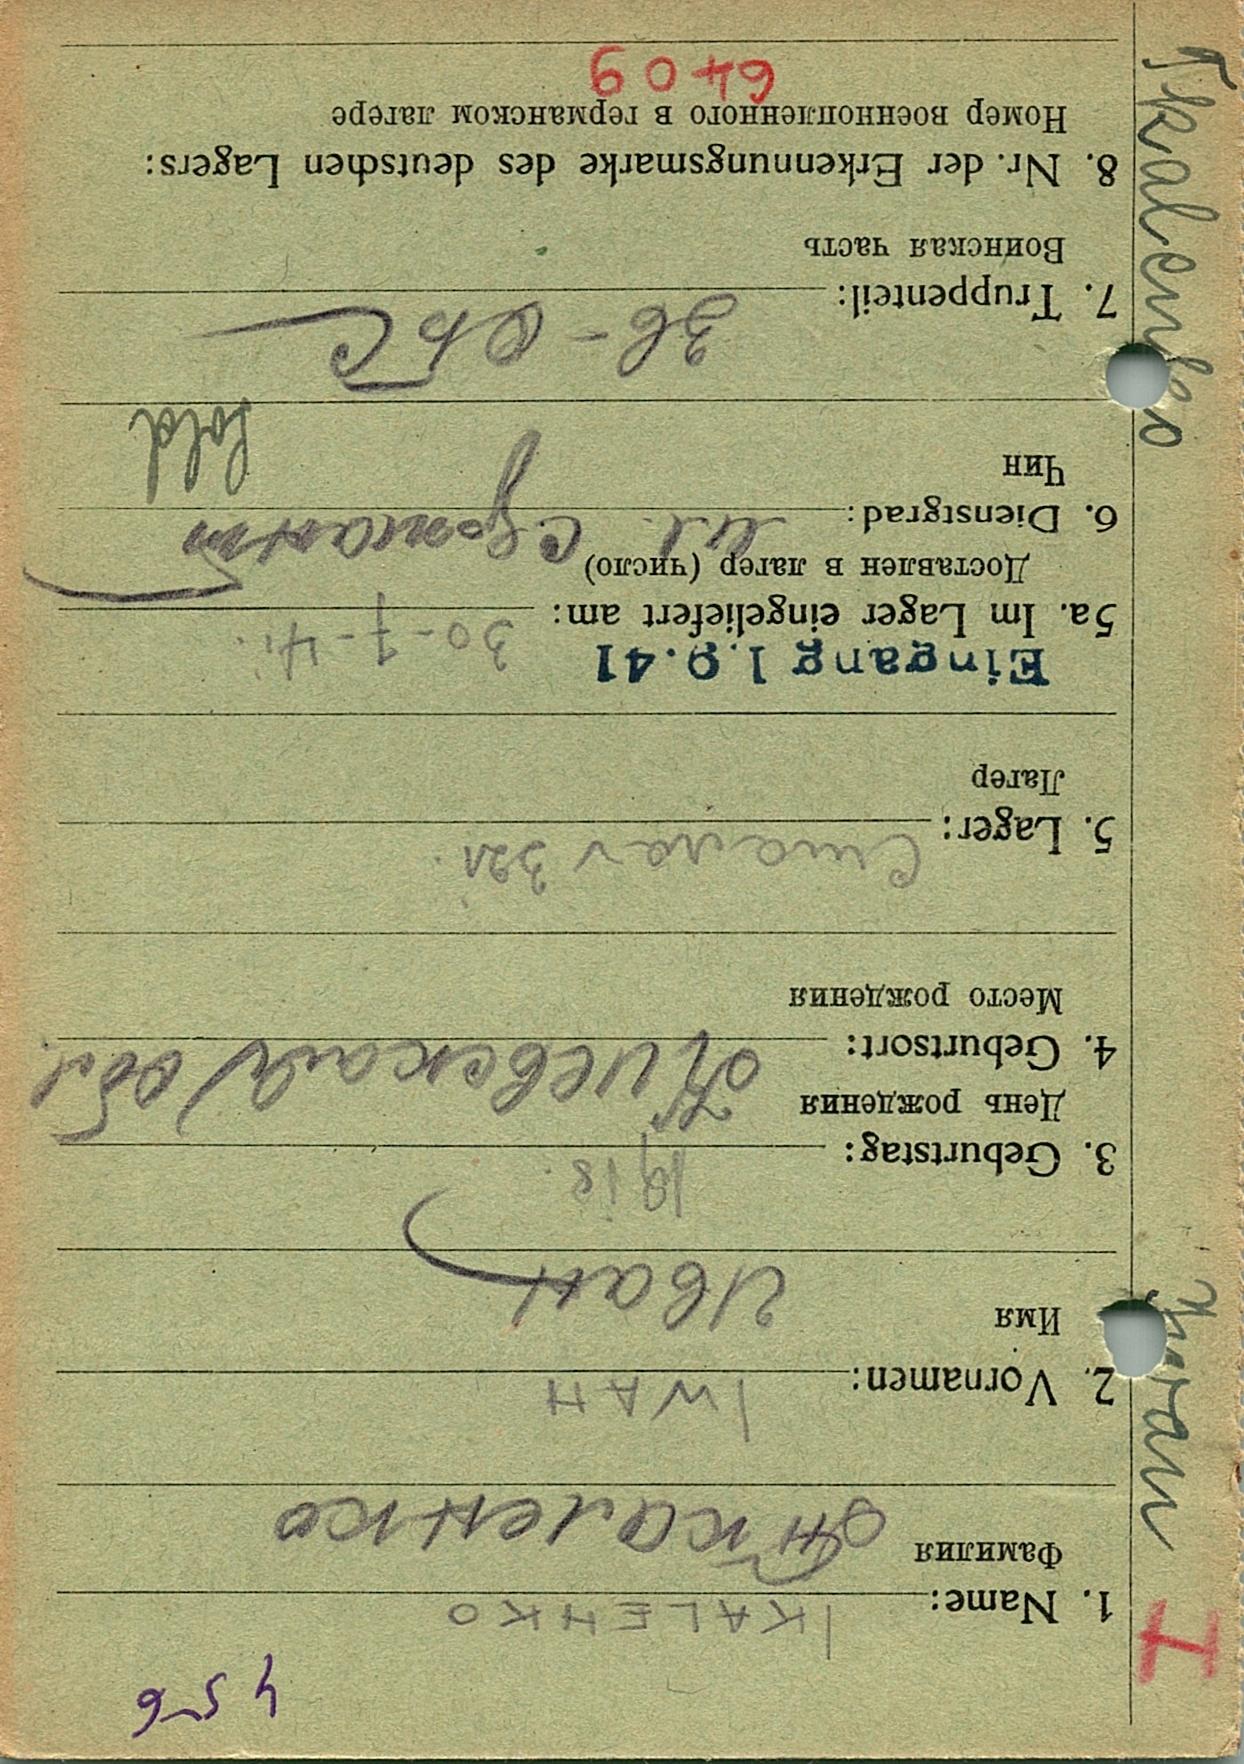 456
1. Name: IKALEHKO
Фамилия Ткаленко
2. Vornamen: IWAH
Имя Иван
3. Geburtstag: 1918.
День рождения
4. Geburtsort: Киевская обл.
Место рождения
5. Lager: Сталаг 321.
Лагер
Eingang 1.9.41
5a. Im Lager eingeliefert am: 30-7-41.
Доставлен в лагер (число)
6. Dienstgrad: Мл. Сержант
Чин Sold
7. Truppenteil: 36-ОБС
Воинская часть
8. Nr. der Erkennungsmarke des deutschen Lagers:
Номер военнопленного в германском лагере
6409
T
Tkalenko
Iwan